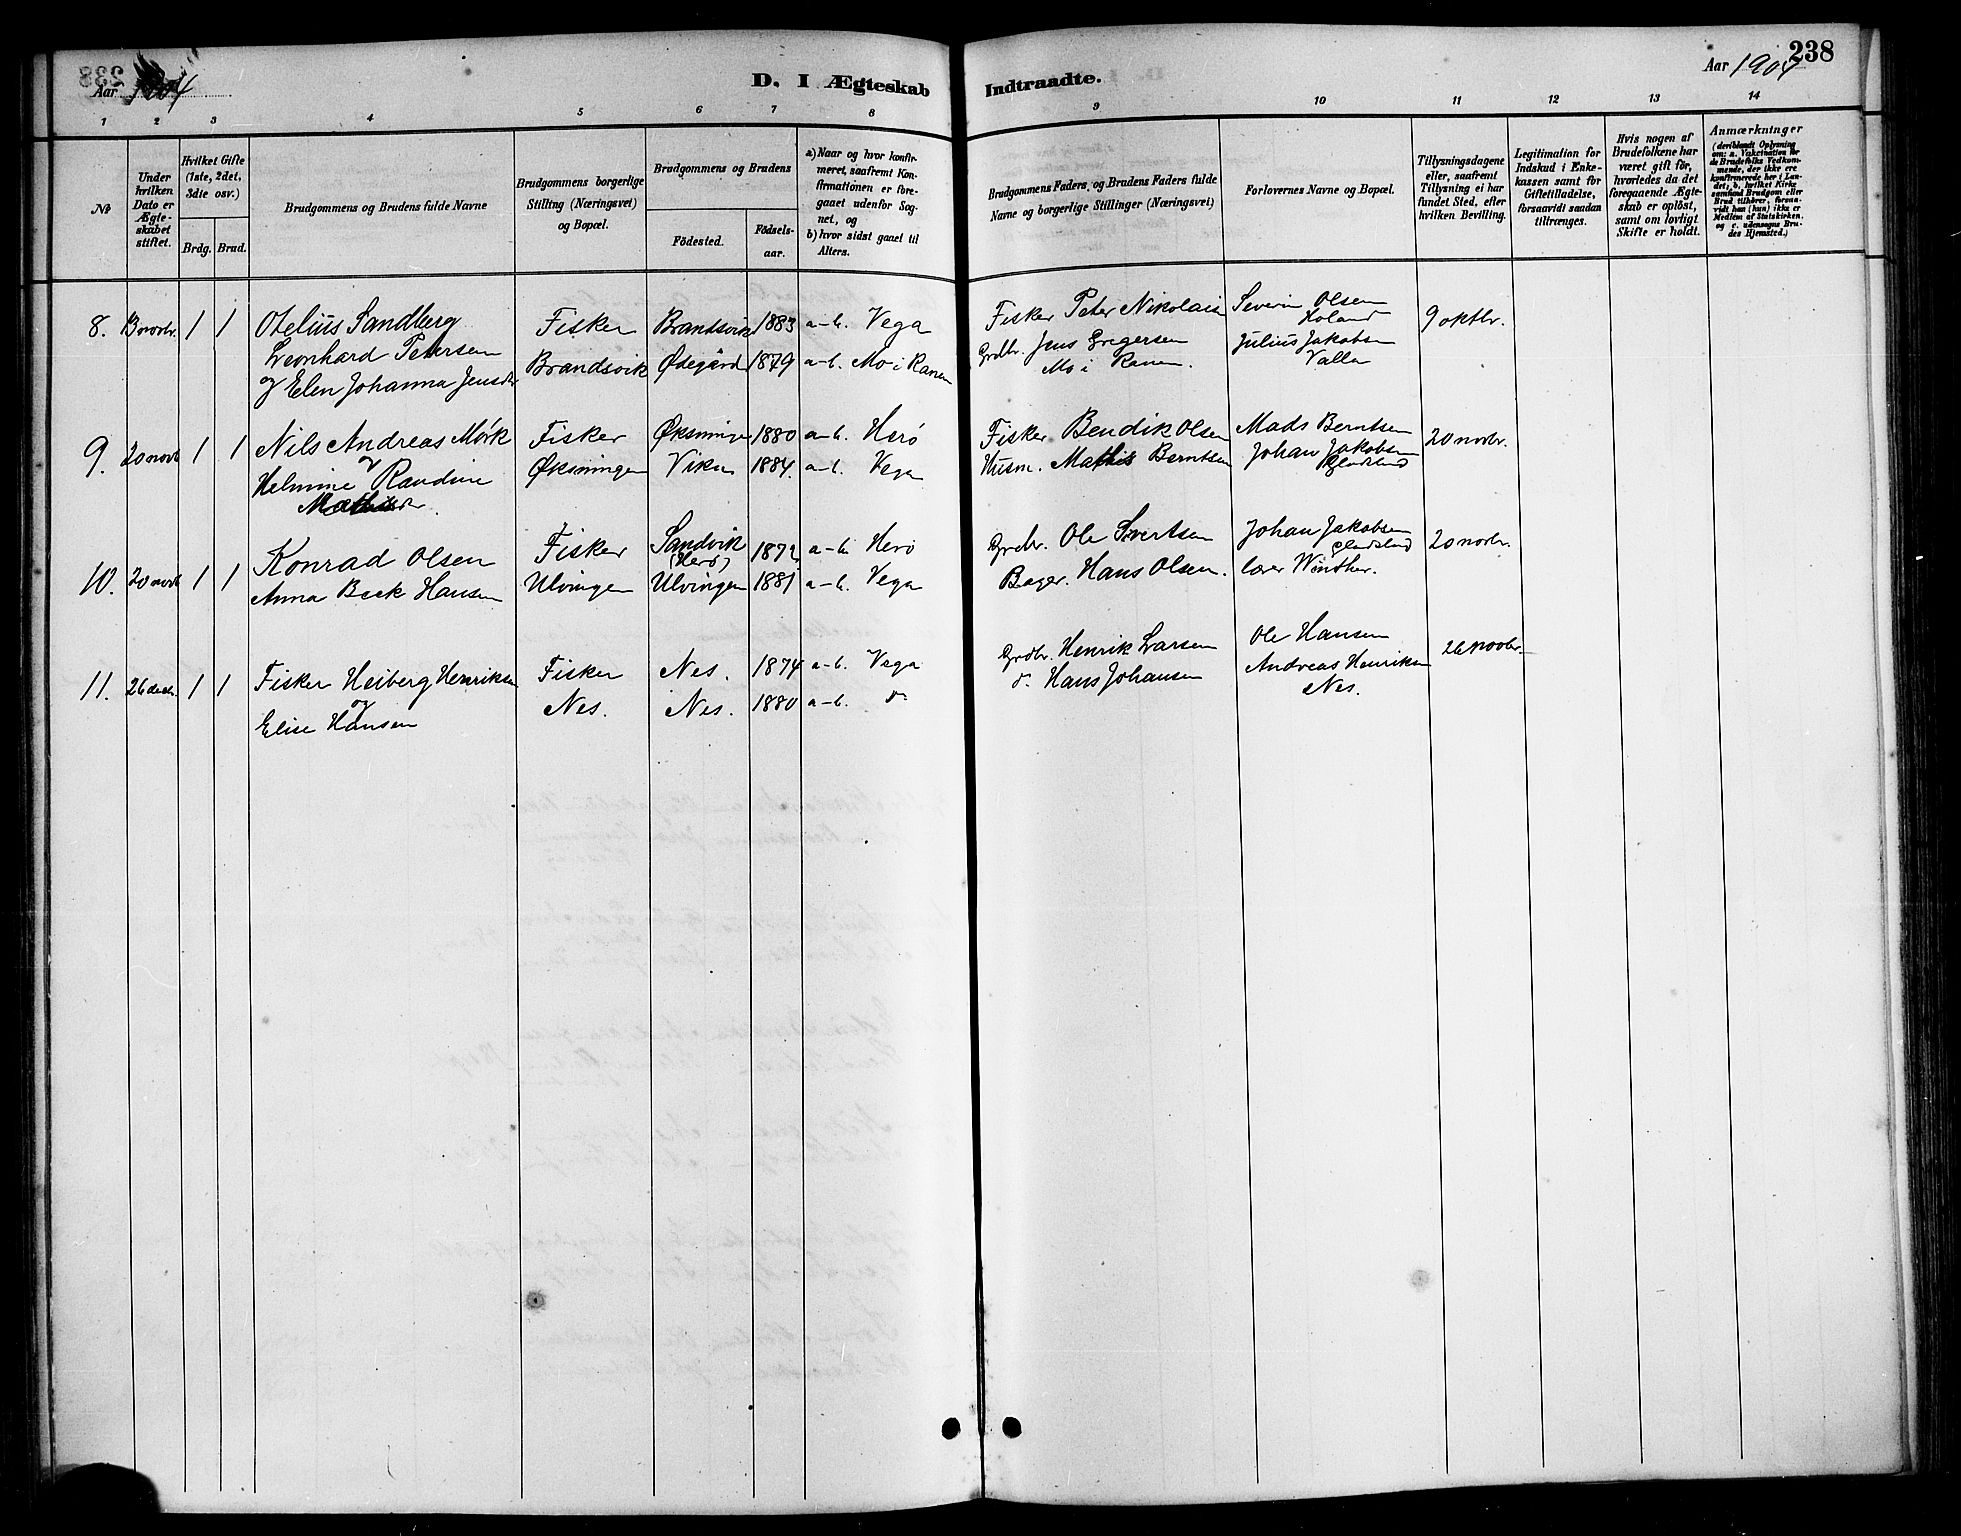 238
Aar 1904
D. I Ægteskab Indtraadte.
Aar 1904
238
1 2 3 4 5 6 7 8 9 10 11 12 13 14
№
Under hvilken Dato er Ægteskabet stiftet.
Hvilket Gifte (1ste, 2det, 3die osv.)
Brdg. Brud.
Brudgommens og Brudens fulde Navne
Brudgommens borgerlige Stilling (Næringsvei) og Bopæl.
Brudgommens og Brudens
Födested.
Födselsaar.
a) Naar og hvor konfirmeret, saafremt Konfirmationen er foregaaet udenfor Sognet, og
b) hvor sidst gaaet til Alters.
Brudgommens Faders, og Brudens Faders fulde Navne og borgerlige Stillinger (Næringsvei)
Forlovernes Navne og Bopæl.
Tillysningsdagene eller, saafremt Tillysning ei har fundet Sted, efter hvilken Bevilling.
Legitimation for Indskud i Enkekassen samt for Giftetilladelse, forsaavidt saadan tiltrænges.
Hvis nogen af Brudefolkene har været gift för, hvorledes da det foregaaende Ægteskab er oplöst, samt om lovligt Skifte er holdt.
Anmærkninger
(deriblandt Oplysning om: a. Vakcination for de Brudefolks Vedkommende, der ikke ere konfirmerede her i Landet; b, hvilket Kirkesamfund Brudgom eller Brud tilhörer, forsaavidt han (hun) ikke er Medlem af Statskirken, og c. udensogns Brudes Hjemsted.)
8. 13 novbr. 1 1 Otelius Sandberg Fisker Brandsvik 1883 a-b. Vega Fisker Peter Nikolaisen Severin Olsen 9 oktbr.
Holand
Leonhard Petersen Brandsvik Ødegård 1879 a-b. Mo i Ranen Grdbr. Jens Gregersen Julius Jakobsen
og Elen Johanna Jensdtr Mo i Ranen. Valla
9. 20 novb 1 1 Nils Andreas Mörk Fisker Øksningen 1880 a-b. Herö Fisker Bendik Olsen Mads Berntsen 20 novbr.
og
Helmine Randine Øksningen Viken 1884. a-b. Vega Husm. Mathis Berntsen Johan Jakobsen
Mathisdr. Gladstad
10. 20 novb 1 1 Konrad Olsen Fisker Sandvik (Herö) 1872 a-b. Herö Grdbr. Ole Sivertsen Johan Jakobsen 20 novbr.
Gladstad
Anna Beck Hansen Ulvingen Ulvingen 1881 a-b. Vega Bager. Hans Olsen. lærer Winther.
11. 26 decbr. 1 1 Fisker Heiberg Henriksen Fisker Nes. 1874 a-b. Vega Grdbr. Henrik Larsen Ole Hansen 26 novbr.
og
Elise Hansen Nes. Nes. 1880 a-b. d. d. Hans Johansen Andreas Henriksen
Nes.